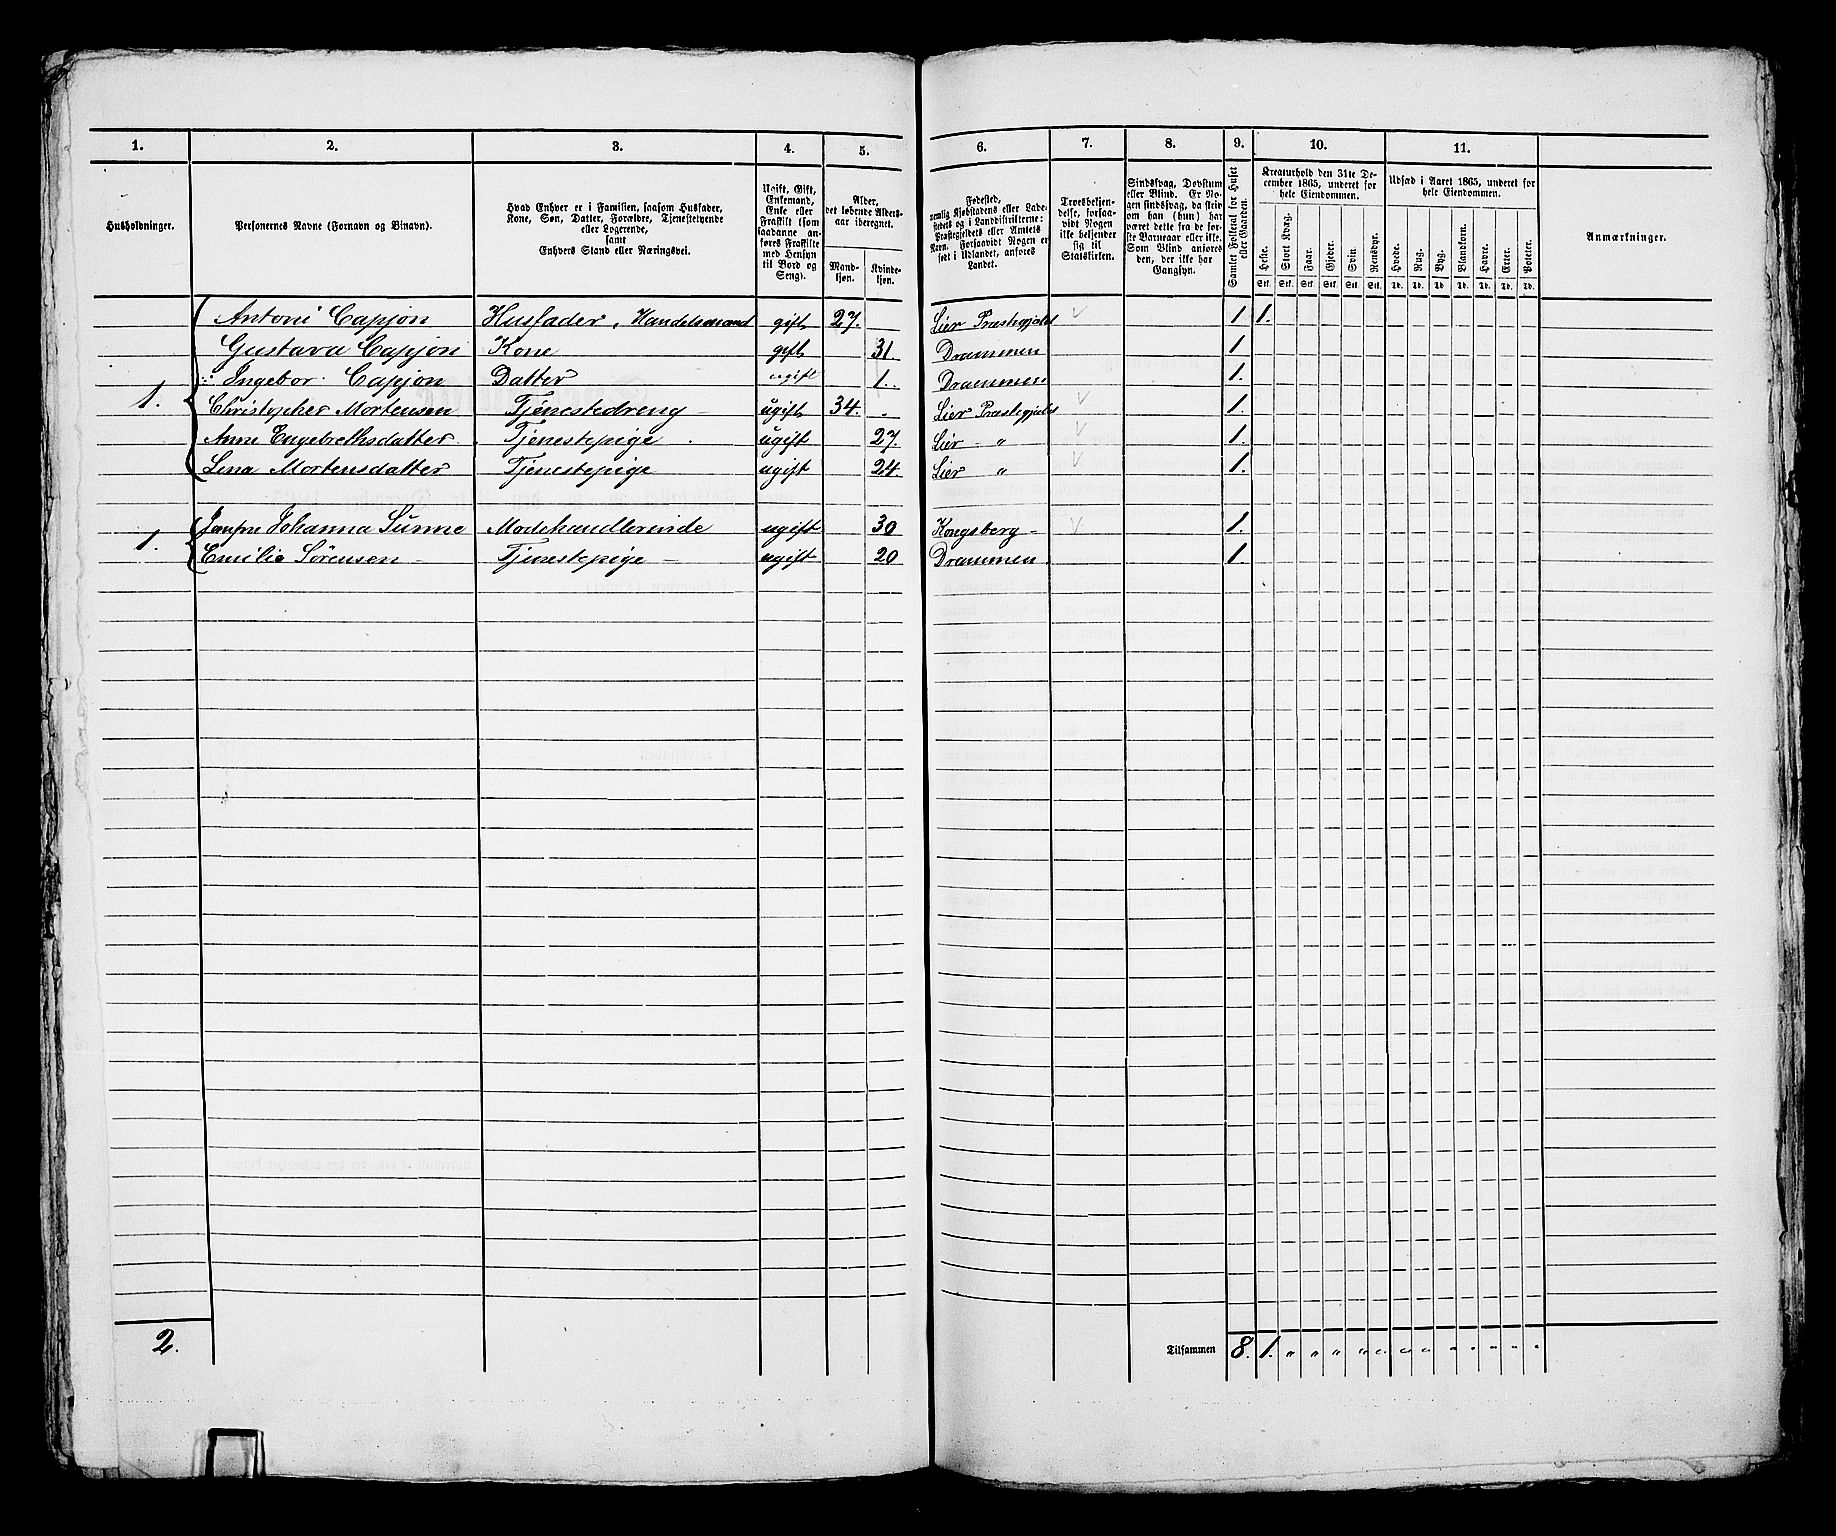 1. 2. 3. 4. 5. 6. 7. 8. 9. 10. 11.
Husholdninger.
Personernes Navne (Fornavn og Binavn).
Hvad Enhver er i Familien, saasom Husfader,
Kone, Søn, Datter, Forældre, Tjenestetyende
eller Logerende,
samt
Enhvers Stand eller Næringsvei.
Ugift, Gift,
Enkemand,
Enke eller
Fraskilt (som
saadanne an-
føres Fraskilte
med Hensyn
til Bord og
Seng).
Alder,
det løbende Alders-
aar iberegnet.
Mand-
kjøn.
Kvinde-
kjøn.
Fødested,
nemlig Kjøbstadens eller Lade-
stedets og i Landdistrikterne:
Præstegjeldets eller Amtets
Navn. Forsaavidt Nogen er
født i Udlandet, anføres
Landet.
Troesbekjen-
delse, forsaa-
vidt Nogen
ikke bekjender
sig til
Statskirken.
Sindssvag, Døvstum
eller Blind. Er No-
gen sindssvag, da skriv
om han (hun) har
været dette fra de før-
ste Barneaar eller ikke.
Som Blind anføres
den, der ikke har
Gangsyn.
Samlet Folketal for Huset
eller Gaarden.
Kreaturhold den 31te De-
cember 1865, underet for
hele Eiendommen.
Heste. Stort Kvæg. Faar. Gjeder. Svin. Rensdyr.
Stk. Stk. Stk. Stk. Stk. Stk.
Udsæd i Aaret 1865, underet for
hele Eiendommen.
Hvede. Rug. Byg. Blandkorn. Havre. Erter. Poteter.
Td. Td. Td. Td. Td. Td. Td.
Anmærkninger.
Antoni Capjon Husfader, Handelsmand gift 27. Lier Præstegjeld 1 1.
Gustava Capjon Kone gift 31 Drammen 1
Ingebor. Capjon Datter ugift 1. Drammen 1.
1. Christopher Mortensen Tjenestedreng ugift 34. Lier Præstegjeld 1.
Anne Engebrethsdatter Tjenestepige ugift 27. Lier " 1.
Lina Mortensdatter Tjenestepige ugift 24. Lier " 1.
1. Jomfru Johanna Sunne Modehandlerinde ugift 30 Kongsberg 1.
Emilie Sørensen Tjenestepige ugift 20 Drammen 1.
2. Tilsammen 8. 1. " " " " " " " " " " " "